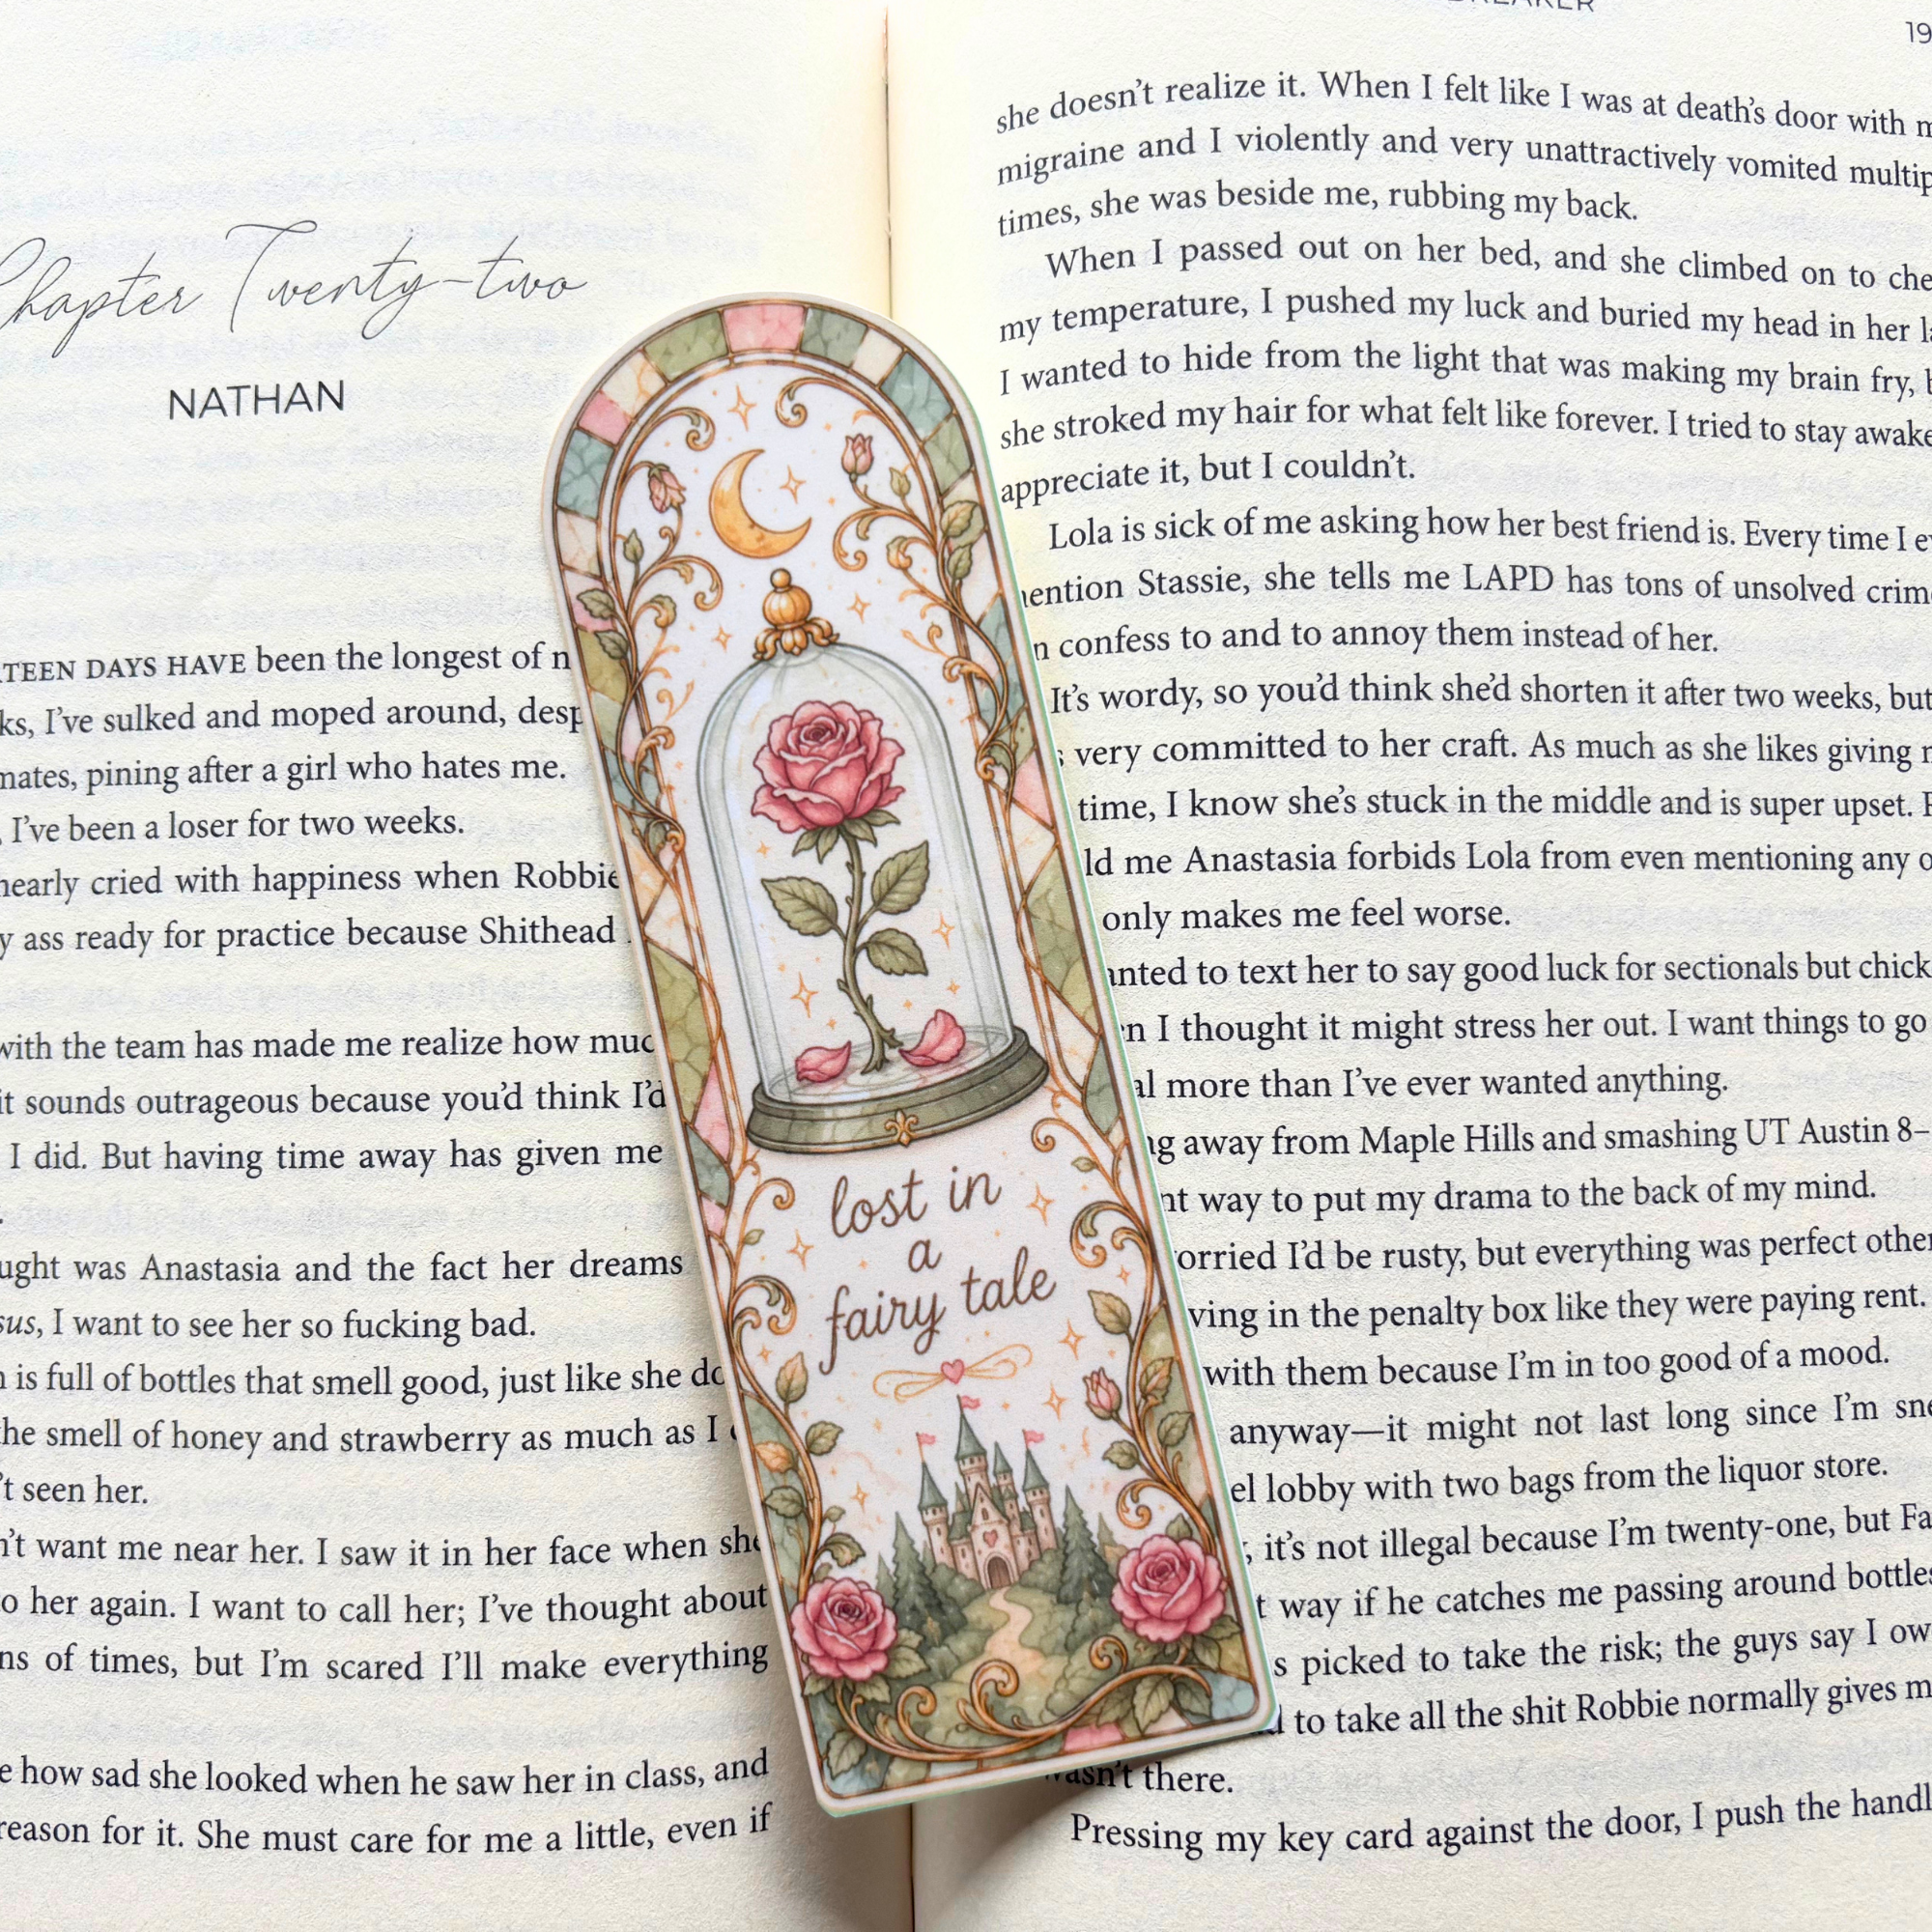 Chapter Twenty-two
NATHAN
DAYS HAVE been the longest of
I've sulked and moped around,
pining after a girl who hates me.
I've been a loser for two weeks.
cried with happiness when Robbie
ass ready for practice because Shithead
with the team has made me realize how
it sounds outrageous because you'd think I'd
I did. But having time away has given me
was Anastasia and the fact her dreams
I want to see her so fucking bad.
is full of bottles that smell good, just like she
the smell of honey and strawberry as much as I
seen her.
want me near her. I saw it in her face when she
her again. I want to call her; I've thought about
of times, but I'm scared I'll make everything
how sad she looked when he saw her in class, and
reason for it. She must care for me a little, even if
lost in
a
fairy tale
19
she doesn't realize it. When I felt like I was at death's door with
migraine and I violently and very unattractively vomited
times, she was beside me, rubbing my back.
When I passed out on her bed, and she climbed on to
my temperature, I pushed my luck and buried my head in her
I wanted to hide from the light that was making my brain fry,
she stroked my hair for what felt like forever. I tried to stay awake
appreciate it, but I couldn't.
Lola is sick of me asking how her best friend is. Every time I
mention Stassie, she tells me LAPD has tons of unsolved
confess to and to annoy them instead of her.
It's wordy, so you'd think she'd shorten it after two weeks, but
very committed to her craft. As much as she likes giving
time, I know she's stuck in the middle and is super upset.
me Anastasia forbids Lola from even mentioning any
only makes me feel worse.
to text her to say good luck for sectionals but
I thought it might stress her out. I want things to go
more than I've ever wanted anything.
away from Maple Hills and smashing UT Austin 8–
way to put my drama to the back of my mind.
I'd be rusty, but everything was perfect
in the penalty box like they were paying rent.
with them because I'm in too good of a mood.
anyway—it might not last long since I'm
lobby with two bags from the liquor store.
it's not illegal because I'm twenty-one, but
way if he catches me passing around bottles
picked to take the risk; the guys say I
to take all the shit Robbie normally gives
wasn't there.
Pressing my key card against the door, I push the